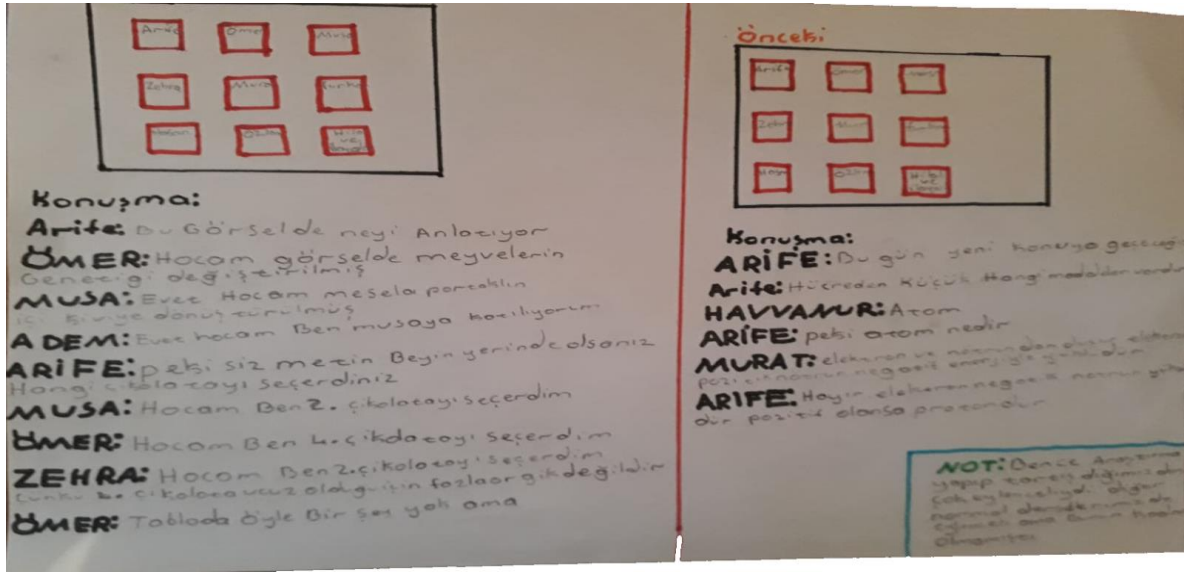 Arife
Ömer
Musa
Zehra
Murat
Furkan
Hasan
Özlem
Hilal ve
Konuşma:
Arife: Bu Görselde neyi Anlatıyor
ÖMER: Hocam görselde meyvelerin
Genetiği değiştirilmiş
MUSA: Evet Hocam mesela portaklın
içi kiviye dönüştürülmüş
ADEM: Evet hocam Ben musaya katılıyorum
ARİFE: peki siz metin Beyin yerinde olsanız
Hangi çikolatayı seçerdiniz
MUSA: Hocam Ben 2. çikolatayı seçerdim
ÖMER: Hocam Ben 4. çikolatayı seçerdim
ZEHRA: Hocam Ben 2. çikolatayı seçerdim
çünkü 4. çikolata ucuz olduğu için fazla değildir
ÖMER: Tabloda öyle Bir şey yok ama
Önceki
Arife
Ömer
Zehra
Özlem
Hilal ve
Konuşma:
ARİFE: Bu gün yeni konuya
Arife: Hücreden Küçük Hangi maddeler vardır
HAVVANUR: Atom
ARİFE: peki atom nedir
MURAT: elektron ve
negatif enerjiyle yüklüdür
ARIFE: Hayır elektron negatif
dur pozitif olansa protondur
NOT: Bence Araştırma
yapıp
çok eylenceliydi diğer
normal
ama bunun kadar
olmamıştı